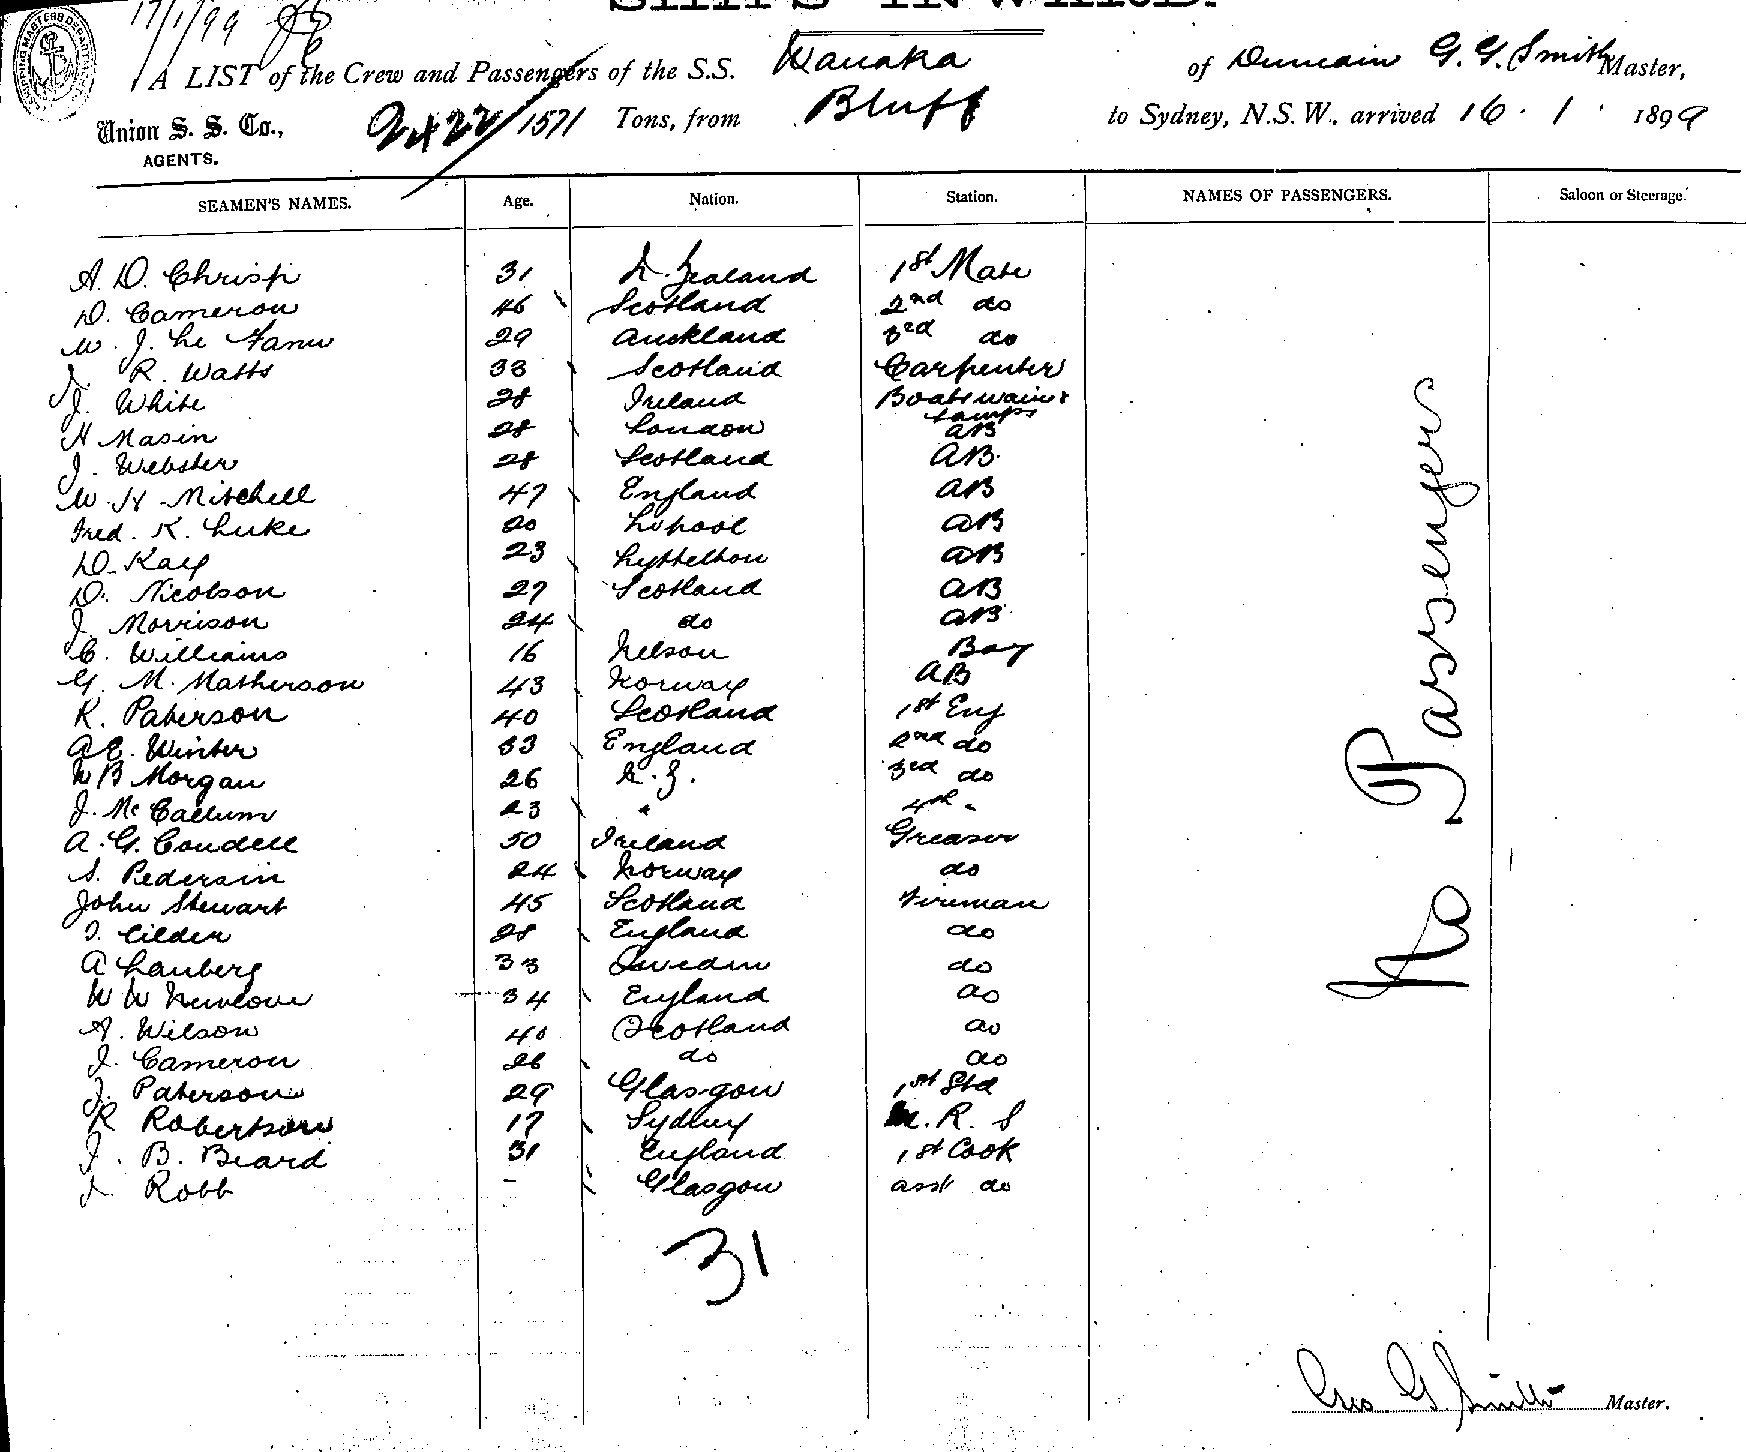 17/1/99
SHIPS INWARD.
A LIST of the Crew and Passengers of the S.S. Wanaka of Dunedin G. G. Smith Master,
Union S. S. Co., 1571 Tons, from Bluff to Sydney, N.S.W., arrived 16 . 1 . 1899
AGENTS.
SEAMEN'S NAMES. Age. Nation. Station. NAMES OF PASSENGERS. Saloon or Steerage.
A. D. Chrisp 31 N. Zealand 1st Mate
D. Cameron 46 Scotland 2nd do
W. J. Le Fanu 29 Auckland 3rd do
J. R. Watts 33 Scotland Carpenter
J. White 28 Ireland Boatswain & Lamps
H Masin 28 London AB
J. Webster 28 Scotland AB.
W. H. Mitchell 47 England AB
Fred. K. Luke 20 L'pool AB
D. Kay 23 Lyttelton AB
D. Nicolson 27 Scotland AB
J. Morrison 24 do AB
C. Williams 16 Nelson Boy
G. M. Matherson 43 Norway AB
R. Paterson 40 Scotland 1st Eng
A E. Winter 33 England 2nd do
W B Morgan 26 N. Z. 3rd do
J. McCallum 23 " 4th "
A. G. Coudell 50 Ireland Greaser
S. Pedersin 24 Norway do
John Stewart 45 Scotland Fireman
28 England do
A Lauberg 33 Sweden do
W W Newlove 34 England do
A. Wilson 40 Scotland do
J. Cameron 26 do do
J. Paterson 29 Glasgow 1st Std
R Robertson 17 Sydney M. R. S
J. B. Beard 31 England 1st Cook
J. Robb - Glasgow asst do
31
No Passengers
Geo G Smith Master.